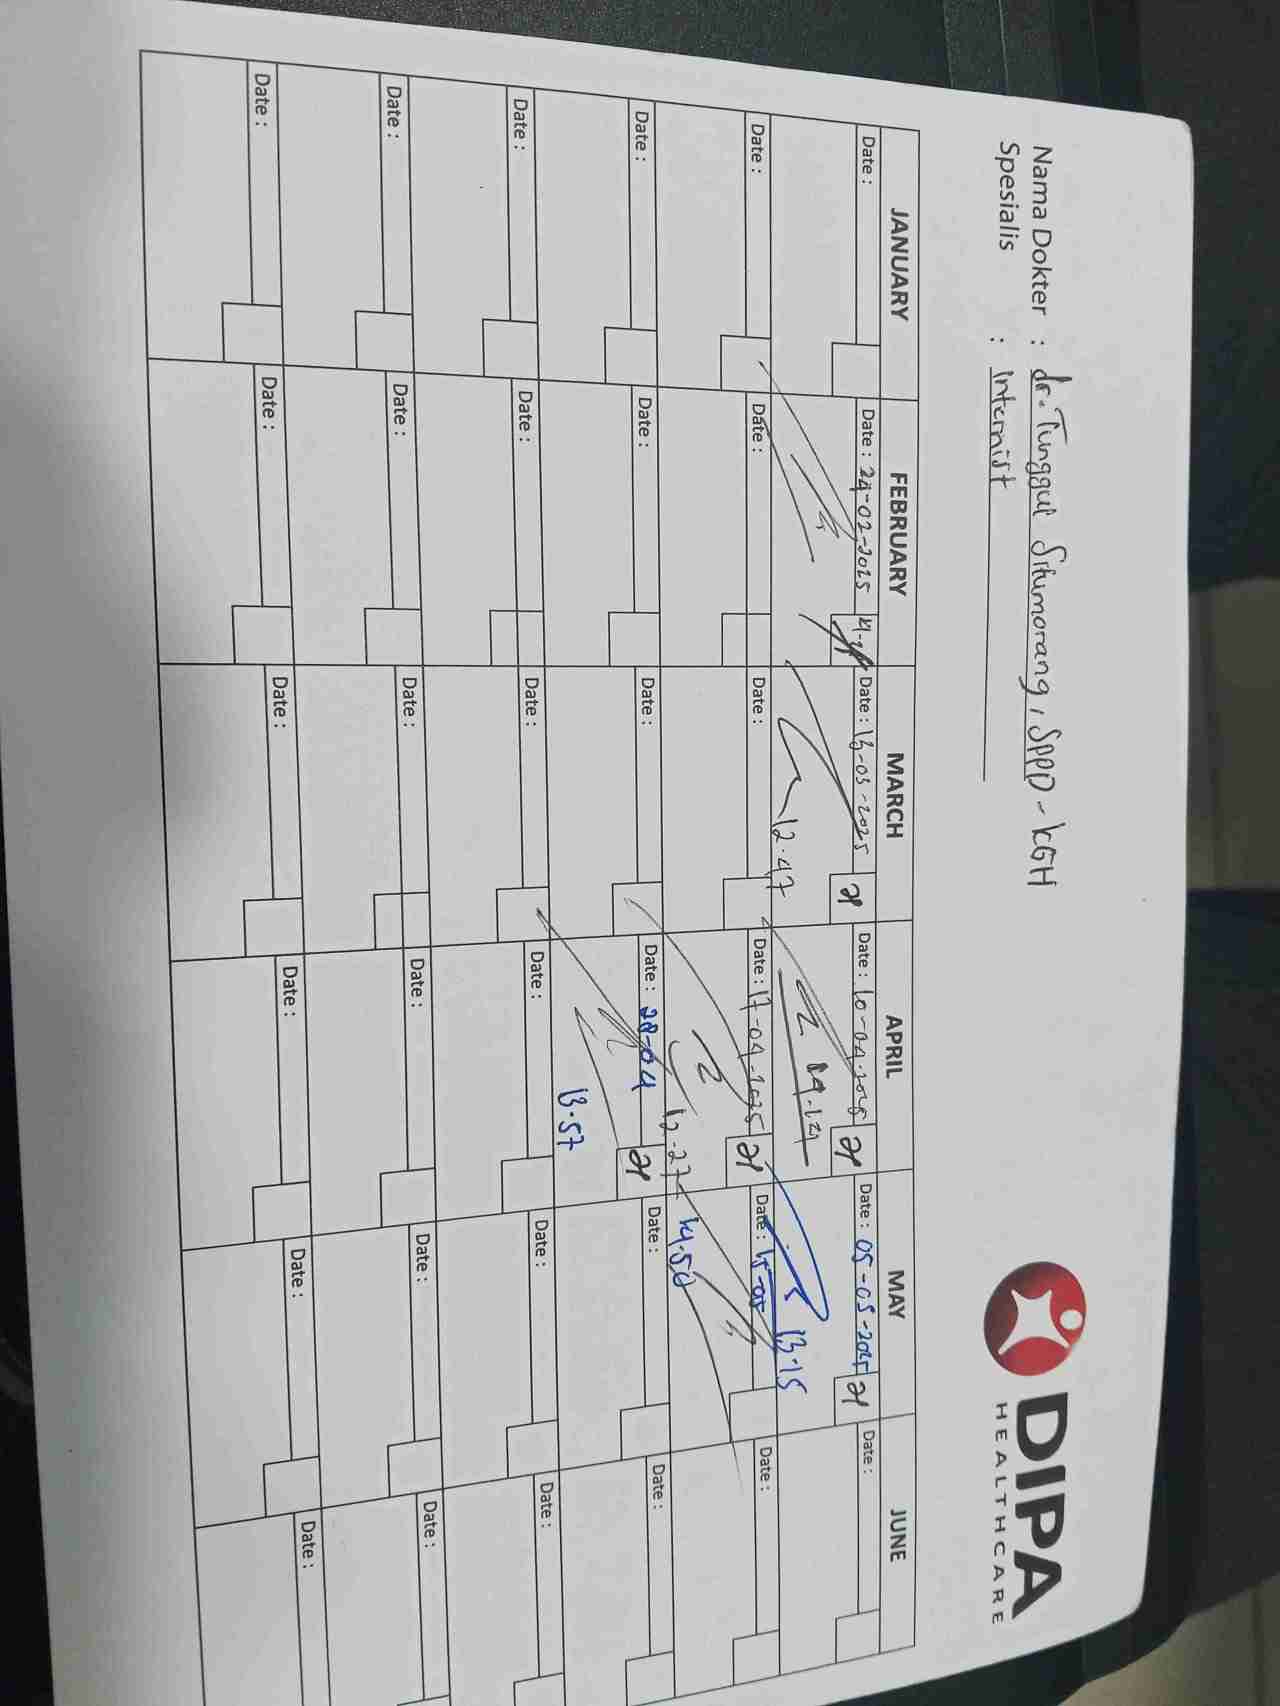 Nama Dokter : dr. Tunggul Situmorang, SPPD - KGH
Spesialis : Internist
DIPA
HEALTHCARE
JANUARY FEBRUARY MARCH APRIL MAY JUNE
Date : Date : 24-02-2025 Date : 13-03-2025 Date : 10-04-2025 Date : 05-05-2025 Date :
12.47 14.14 13.15
Date : Date : Date : Date : 17-04-2025 Date : 15-05 Date :
12.27 14.50
Date : Date : Date : Date : 28-04 Date : Date :
13.57
Date : Date : Date : Date : Date : Date :
Date : Date : Date : Date : Date : Date :
Date : Date : Date : Date : Date : Date :